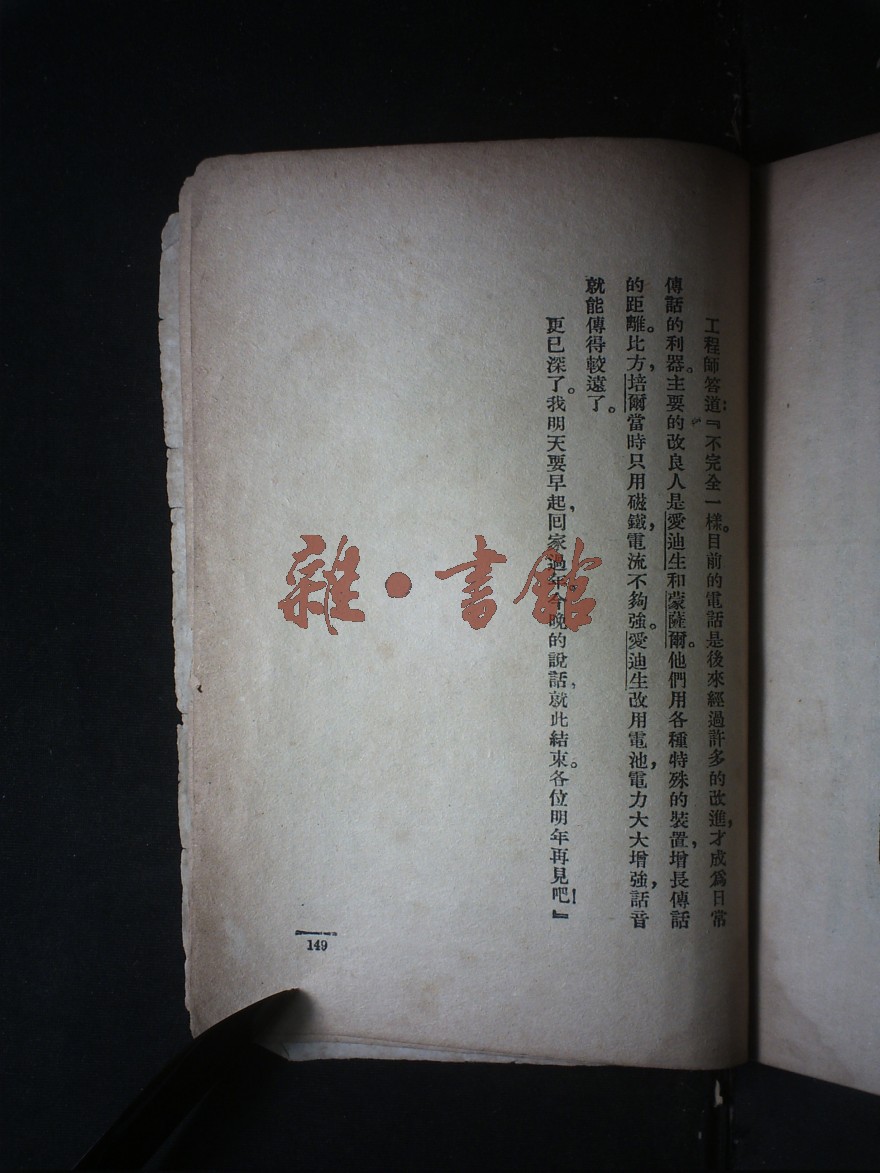 工程師答道：『不完全一樣。目前的電話是後來經過許多的改進，才成爲日常
傳話的利器。主要的改良人是愛迪生和蒙薩爾。他們用各種特殊的裝置，增長傳話
的距離。比方，培爾當時只用磁鐵，電流不夠強。愛迪生改用電池，電力大大增強，話音
就能傳得較遠了。
更已深了。我明天要早起，回家過年。今晚的說話，就此結束。各位明年再見吧！』
149
雜·書館